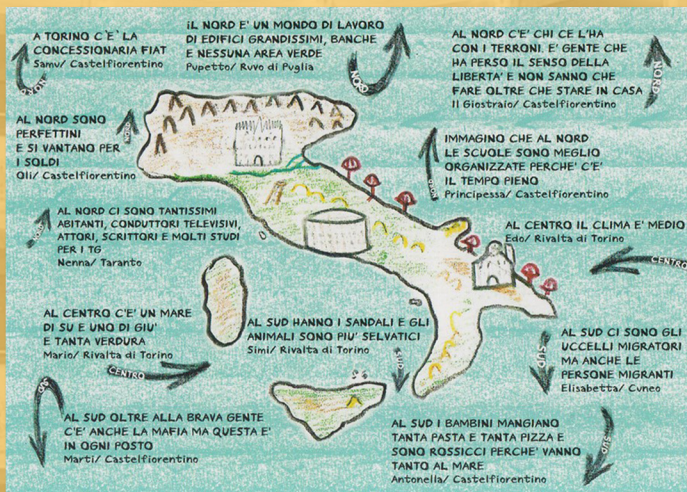 A TORINO C'E' LA
CONCESSIONARIA FIAT
Samu/ Castelfiorentino
NORD
iL NORD E' UN MONDO DI LAVORO
DI EDIFICI GRANDISSIMI, BANCHE
E NESSUNA AREA VERDE
Pupetto/ Ruvo di Puglia
NORD
AL NORD C'E' CHI CE L'HA
CON I TERRONI. E' GENTE CHE
HA PERSO IL SENSO DELLA
LIBERTA' E NON SANNO CHE
FARE OLTRE CHE STARE IN CASA
Il Giostraio/ Castelfiorentino
NORD
AL NORD SONO
PERFETTINI
E SI VANTANO PER
I SOLDI
Oli/ Castelfiorentino
IMMAGINO CHE AL NORD
LE SCUOLE SONO MEGLIO
ORGANIZZATE PERCHE' C'E'
IL TEMPO PIENO
Principessa/ Castelfiorentino
AL NORD CI SONO TANTISSIMI
ABITANTI, CONDUTTORI TELEVISIVI,
ATTORI, SCRITTORI E MOLTI STUDI
PER I TG
Nenna/ Taranto
AL CENTRO IL CLIMA E' MEDIO
Edo/ Rivalta di Torino
CENTRO
AL CENTRO C'E' UN MARE
DI SU E UNO DI GIU'
E TANTA VERDURA
Mario/ Rivalta di Torino
CENTRO
AL SUD HANNO I SANDALI E GLI
ANIMALI SONO PIU' SELVATICI
Simi/ Rivalta di Torino
SUD
AL SUD CI SONO GLI
UCCELLI MIGRATORI
MA ANCHE LE
PERSONE MIGRANTI
Elisabetta/ Cuneo
SUD
AL SUD OLTRE ALLA BRAVA GENTE
C'E' ANCHE LA MAFIA MA QUESTA E'
IN OGNI POSTO
Marti/ Castelfiorentino
SUD
AL SUD I BAMBINI MANGIANO
TANTA PASTA E TANTA PIZZA E
SONO ROSSICCI PERCHE' VANNO
TANTO AL MARE
Antonella/ Castelfiorentino
SUD